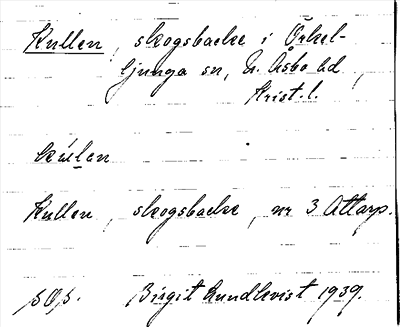 Kullen, skogsbacke i Örkel-
ljunga sn, N. Åsbo hd,
Krist. l.
kúlen
Kullen, skogsbacke, nr 3 Attarp.
Birgit Lundkvist 1939.